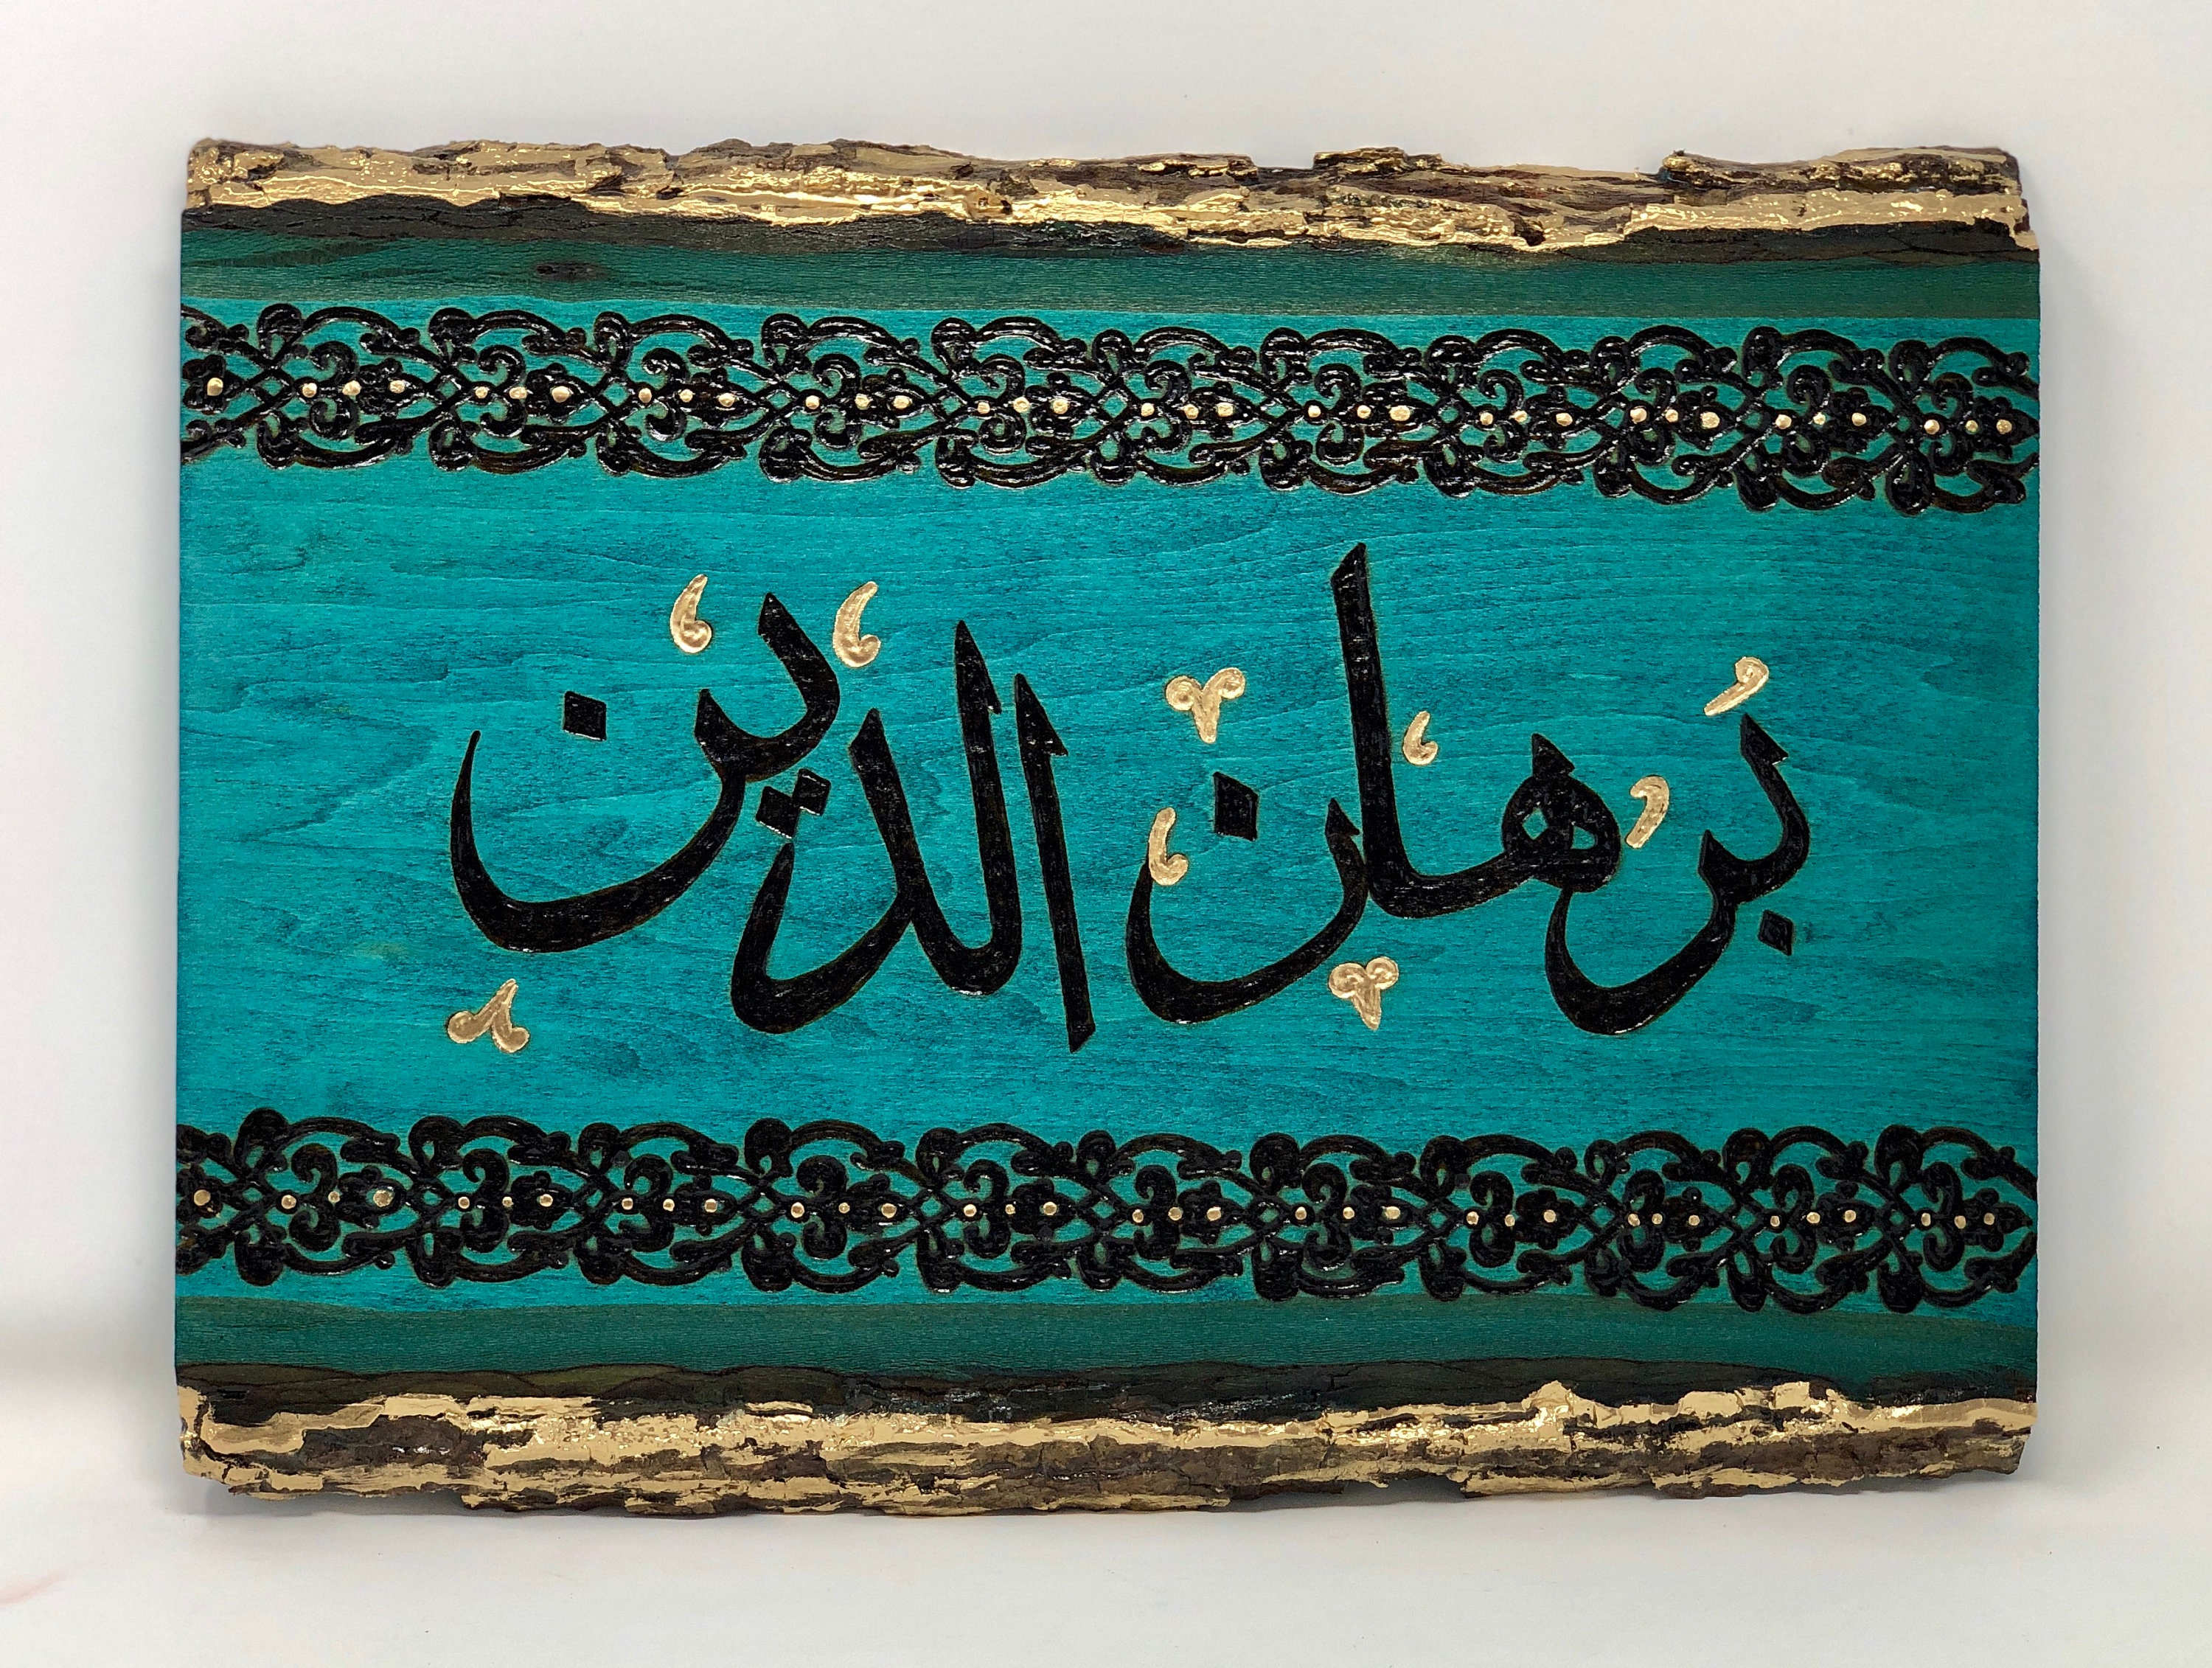 بُرهان الدين